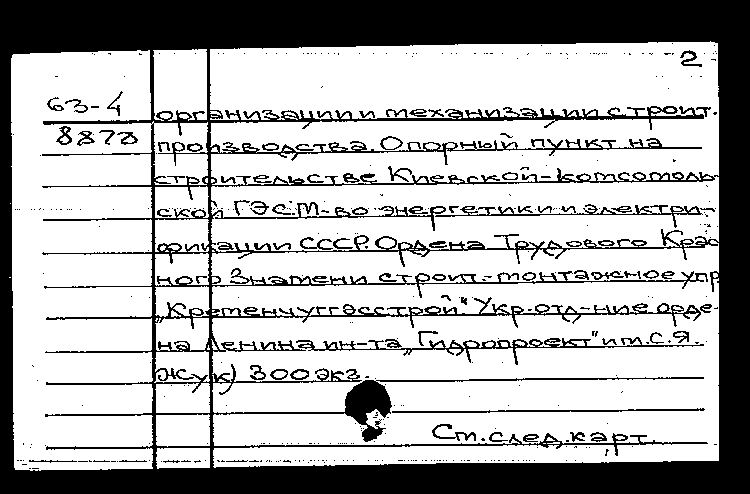 2
63-4
8878
организации и механизации строит.
производства. Опорный пункт на
строительстве Киевской-комсомоль
ской ГЭС. М-во энергетики и электри-
фикации СССР. Ордена Трудового Крас
ного Знамени строит.-монтажное упр
„Кременчуггэсстрой“ Укр. отд-ние орде
на Ленина ин-та „Гидропроект“ им. С.Я.
Жук) 300 экз.
См. след. карт.